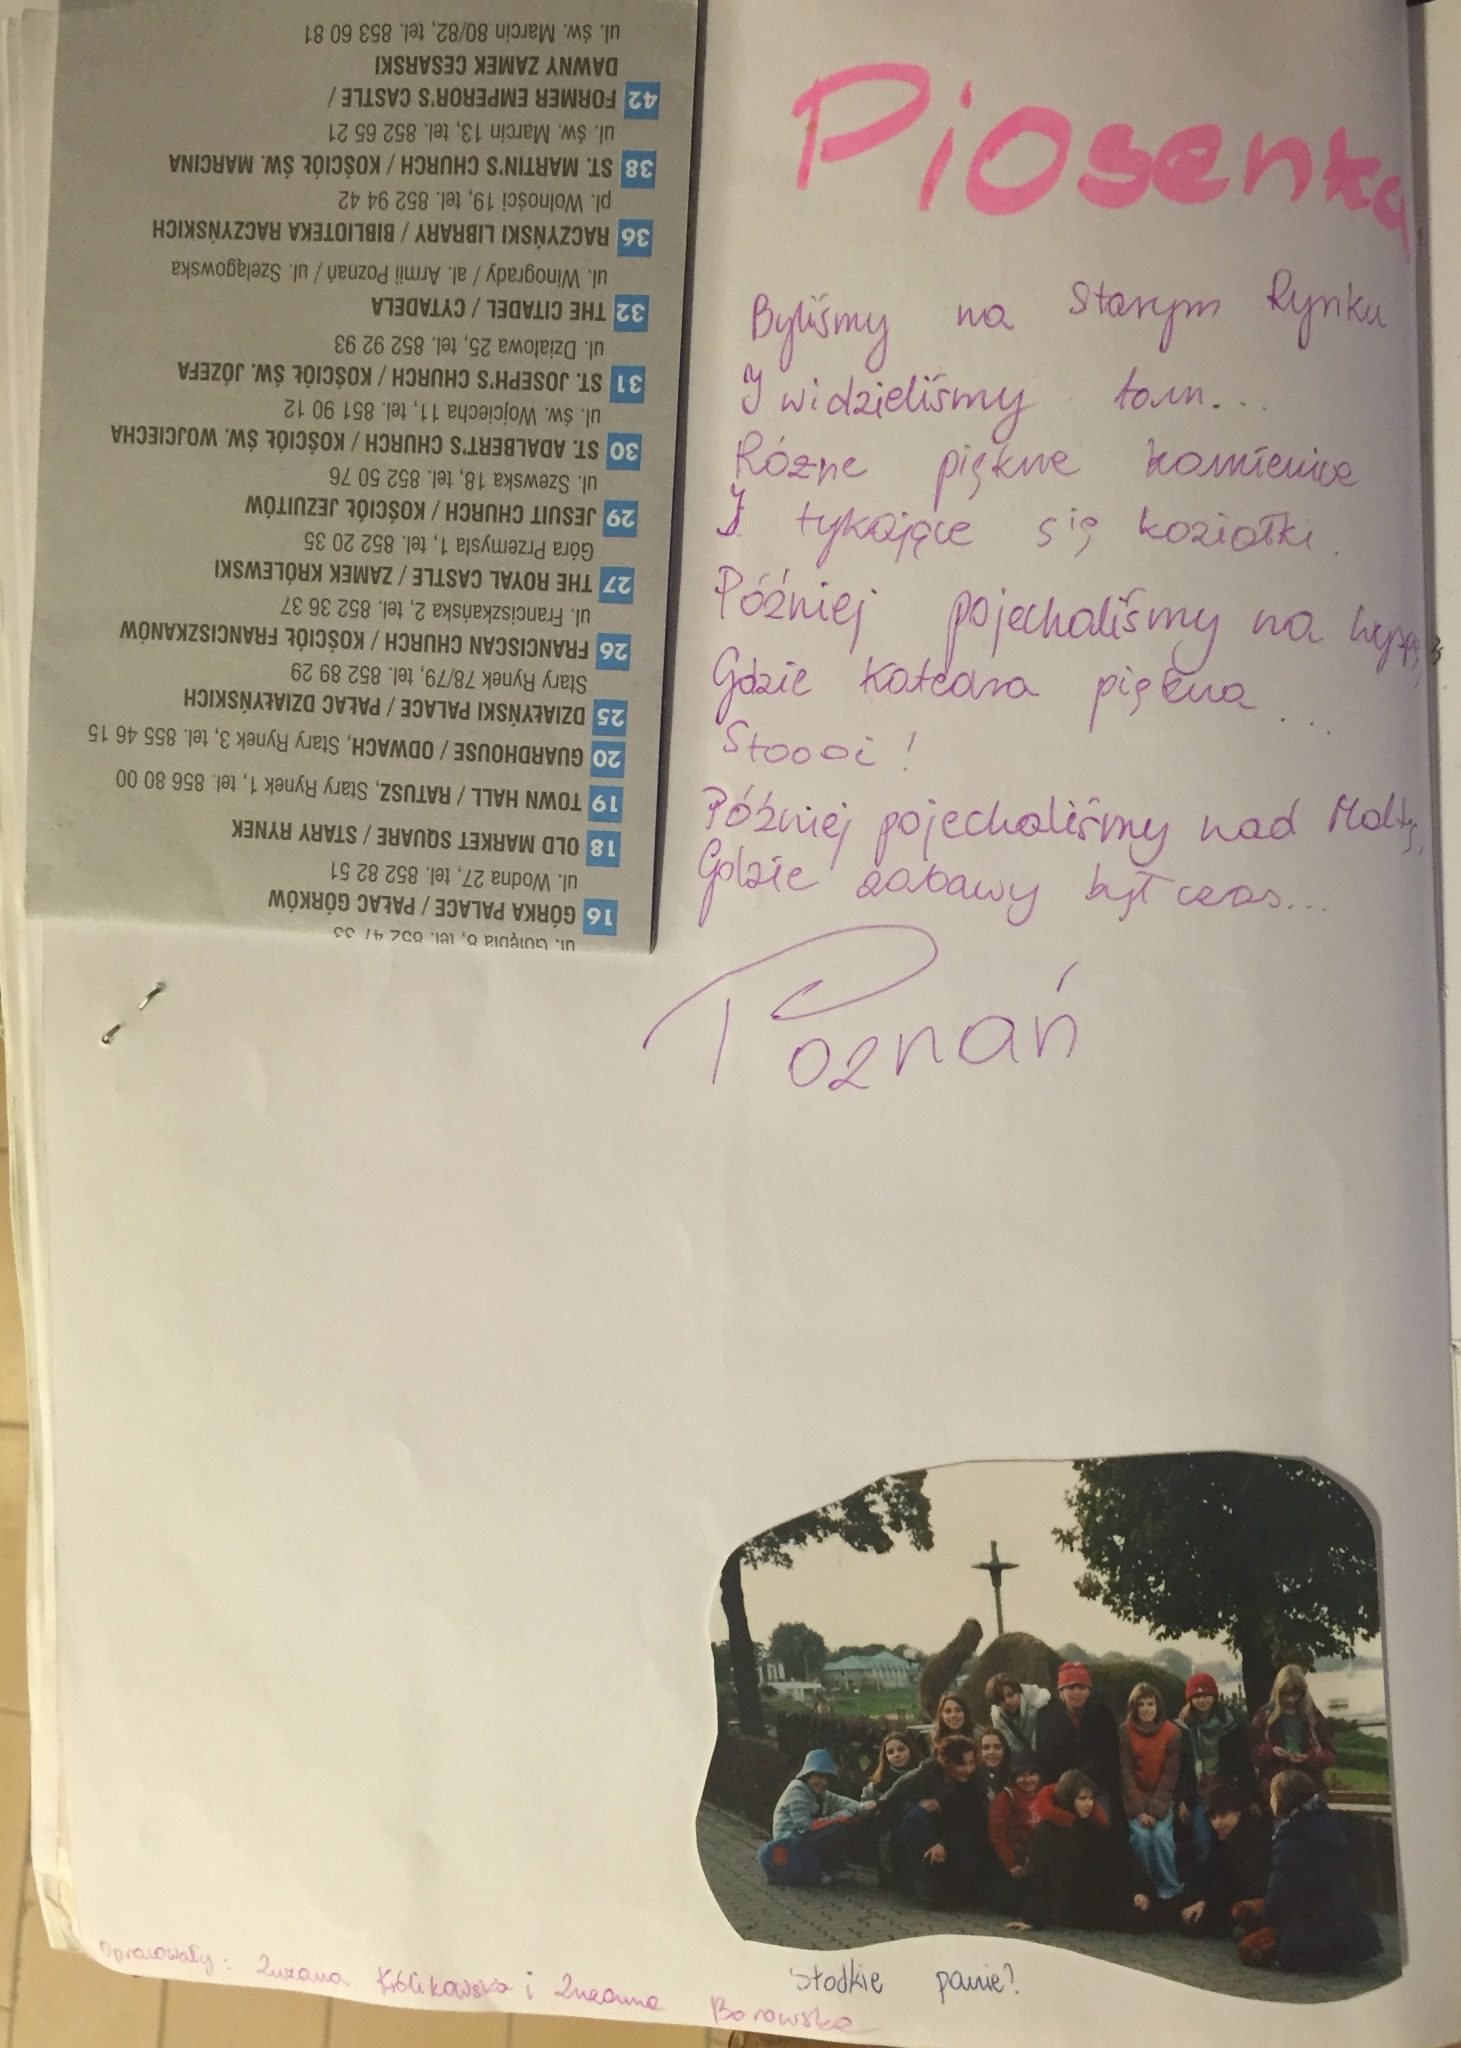 Piosenka
Byliśmy na Starym Rynku
I widzieliśmy tam...
Rózne piękne kamienice
I tykające się koziołki.
Później pojechaliśmy na wyspę,
Gdzie Katedra piękna...
Stoooi!
Później pojechaliśmy nad Maltę,
Gdzie zabawy był czas...
Poznań
ul. Gołębia 8, tel. 852 47 53
16 GÓRKA PALACE / PAŁAC GÓRKÓW
ul. Wodna 27, tel. 852 82 51
18 OLD MARKET SQUARE / STARY RYNEK
19 TOWN HALL / RATUSZ, Stary Rynek 1, tel. 856 80 00
20 GUARDHOUSE / ODWACH, Stary Rynek 3, tel. 855 46 15
25 DZIAŁYŃSKI PALACE / PAŁAC DZIAŁYŃSKICH
Stary Rynek 78/79, tel. 852 89 29
26 FRANCISCAN CHURCH / KOŚCIÓŁ FRANCISZKANÓW
ul. Franciszkańska 2, tel. 852 36 37
27 THE ROYAL CASTLE / ZAMEK KRÓLEWSKI
Góra Przemysła 1, tel. 852 20 35
29 JESUIT CHURCH / KOŚCIÓŁ JEZUITÓW
ul. Szewska 18, tel. 852 50 76
30 ST. ADALBERT'S CHURCH / KOŚCIÓŁ ŚW. WOJCIECHA
ul. św. Wojciecha 11, tel. 851 90 12
31 ST. JOSEPH'S CHURCH / KOŚCIÓŁ ŚW. JÓZEFA
ul. Działowa 25, tel. 852 92 93
32 THE CITADEL / CYTADELA
ul. Winogrady / al. Armii Poznań / ul. Szelągowska
36 RACZYŃSKI LIBRARY / BIBLIOTEKA RACZYŃSKICH
pl. Wolności 19, tel. 852 94 42
38 ST. MARTIN'S CHURCH / KOŚCIÓŁ ŚW. MARCINA
ul. św. Marcin 13, tel. 852 65 21
42 FORMER EMPEROR'S CASTLE /
DAWNY ZAMEK CESARSKI
ul. św. Marcin 80/82, tel. 853 60 81
Słodkie panie?
Opracowały: Zuzana Królikowska i Zuzanna Borowska